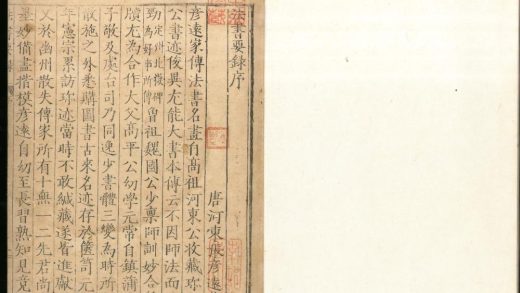 法書要錄序
唐河東張彥遠
彥遠家傳法書名畫自高祖河東公收藏珍
公書迹俊異尤能大書本傳云不因師法而
勁定州北嶽碑爲好事所傳曾祖魏國公少稟師訓妙合
牘尤爲合作大父高平公幼學元常自鎮蒲
子敬及處台司乃同逸少書體三變爲時所
散施之外悉購圖書古來名迹存於篋笥元
年憲宗累訪珍迹當時不敢緘藏遂皆進獻
又於幽州散失傳家所有十無一二先君尚
墨妙備盡楷模彥遠自幼至長習熟知見竟